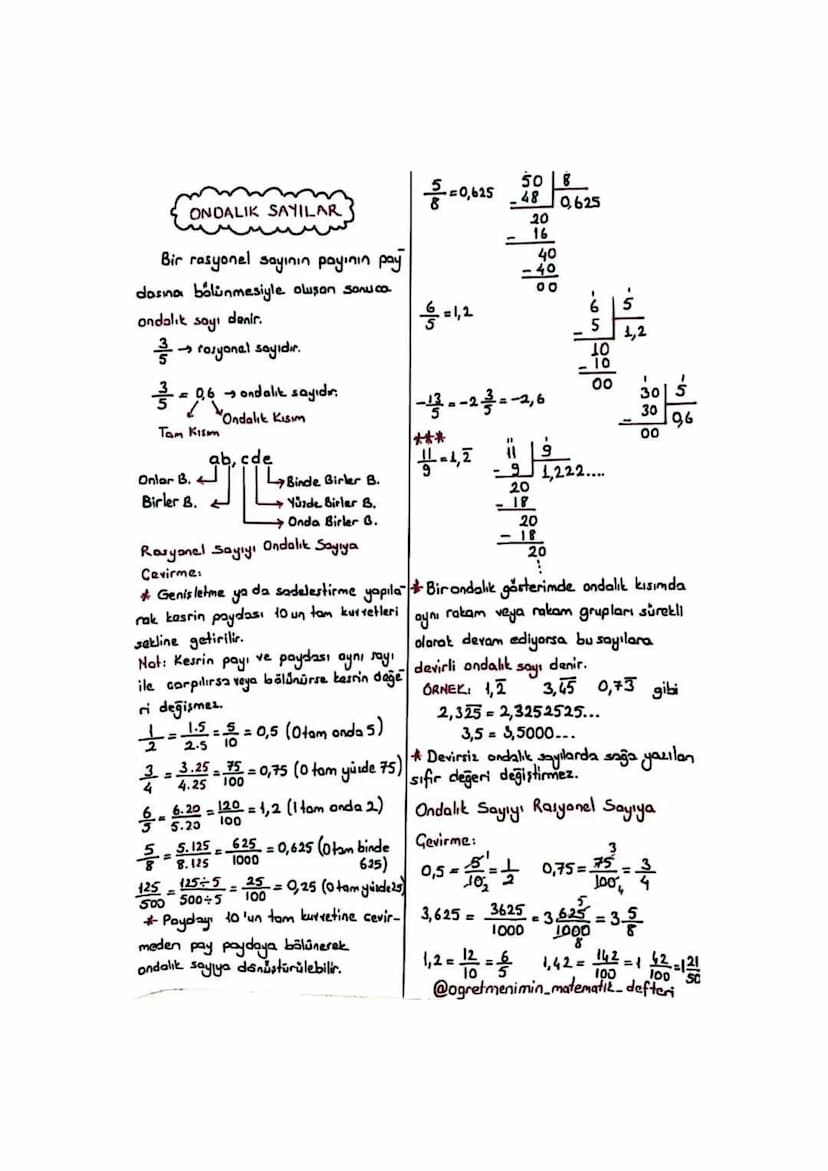 ONDALIK SAYILAR
Bir rasyonel sayının payının pay
dasına bölünmesiyle oluşan sonuca
ondalık sayı denir.
3/5 → rasyonel sayıdır.
3/5 = 0,6 → ondalık sayıdır.
Ondalık Kısım
Tam Kısım
ab,cde
Onlar B. Binde Birler B.
Birler B. Yüzde Birler B.
Onda Birler B.
Rasyonel Sayıyı Ondalık Sayıya
Çevirme:
* Genişletme ya da sadeleştirme yapıla
rak kesrin paydası 10 un tam kuvvetleri
şekline getirilir.
Not: Kesrin payı ve paydası aynı sayı
ile çarpılırsa veya bölünürse kesrin değe
ri değişmez.
1/2 = 1.5/2.5 = 5/10 = 0,5 (0 tam onda 5)
3/4 = 3.25/4.25 = 75/100 = 0,75 (0 tam yüzde 75)
6/5 = 6.20/5.20 = 120/100 = 1,2 (1 tam onda 2)
5/8 = 5.125/8.125 = 625/1000 = 0,625 (0 tam binde
625)
125/500 = 125÷5/500÷5 = 25/100 = 0,25 (0 tam yüzde 25)
* Paydayı 10'un tam kuvvetine çevir-
meden pay paydaya bölünerek
ondalık sayıya dönüştürülebilir.
5/8 = 0,625 50 8
- 48 0,625
20
- 16
40
- 40
00
6/5 = 1,2 6 5
- 5 1,2
10
- 10
00
-13/5 = -2 3/5 = -2,6 30 5
- 30 0,6
00
***
11/9 = 1,2̅ 11 9
- 9 1,222....
20
- 18
20
- 18
20
* Bir ondalık gösterimde ondalık kısımda
aynı rakam veya rakam grupları sürekli
olarak devam ediyorsa bu sayılara
devirli ondalık sayı denir.
ÖRNEK: 1,2̅ 3,4̅5̅ 0,73̅ gibi
2,32̅5̅ = 2,3252525...
3,5 = 3,5000...
* Devirsiz ondalık sayılarda sağa yazılan
sıfır değeri değiştirmez.
Ondalık Sayıyı Rasyonel Sayıya
Çevirme:
0,5 = 5/10 = 1/2 0,75 = 75/100 = 3/4
3,625 = 3625/1000 = 3 625/1000 = 3 5/8
1,2 = 12/10 = 6/5 1,42 = 142/100 = 1 42/100 = 1 21/50
@ogretmenimin_matematik_defteri